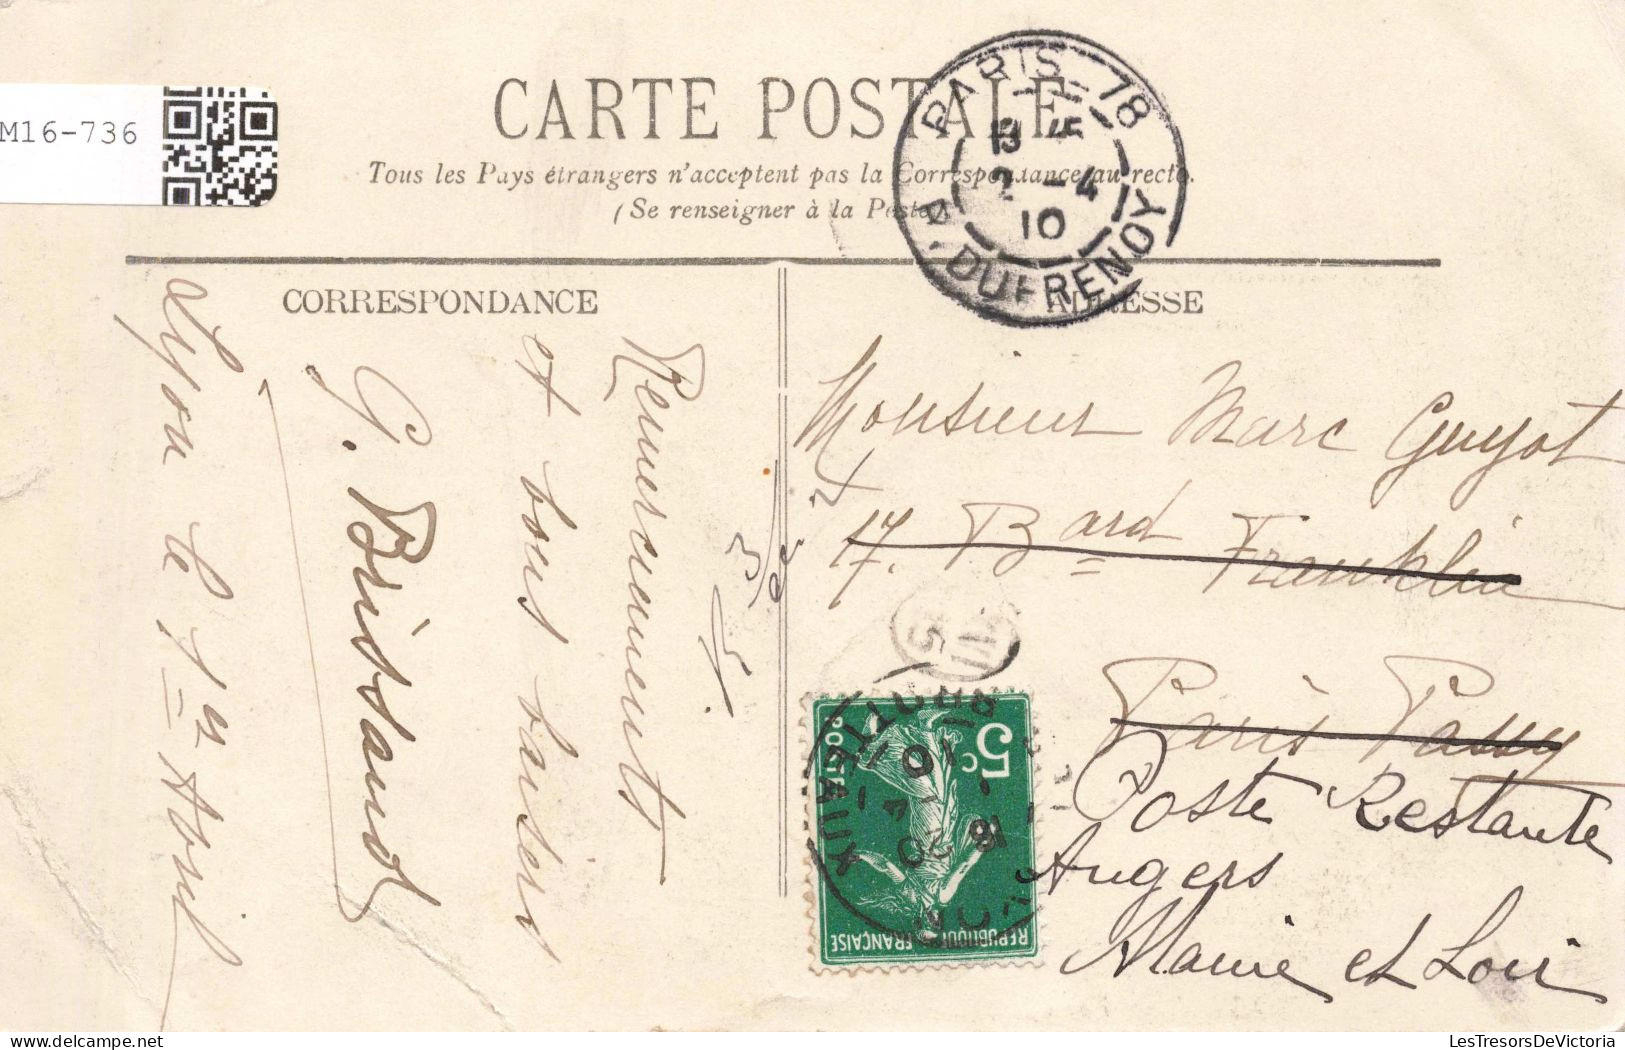 M16-736
CARTE POSTALE
Tous les Pays étrangers n'acceptent pas la Correspondance au recto.
(Se renseigner à la Poste)
PARIS_78
2 -4
10
R. DUFRENOY
CORRESPONDANCE
Lyon le 1er Avril
G. Brissaud
et bons baisers
Remerciements
ADRESSE
Monsieur Marc Guyot
17. Bard Franklin
Paris Passy
Poste Restante
Angers
Maine et Loir
5c
POSTES
REPUBLIQUE FRANÇAISE
LesTresorsDeVictoria.com